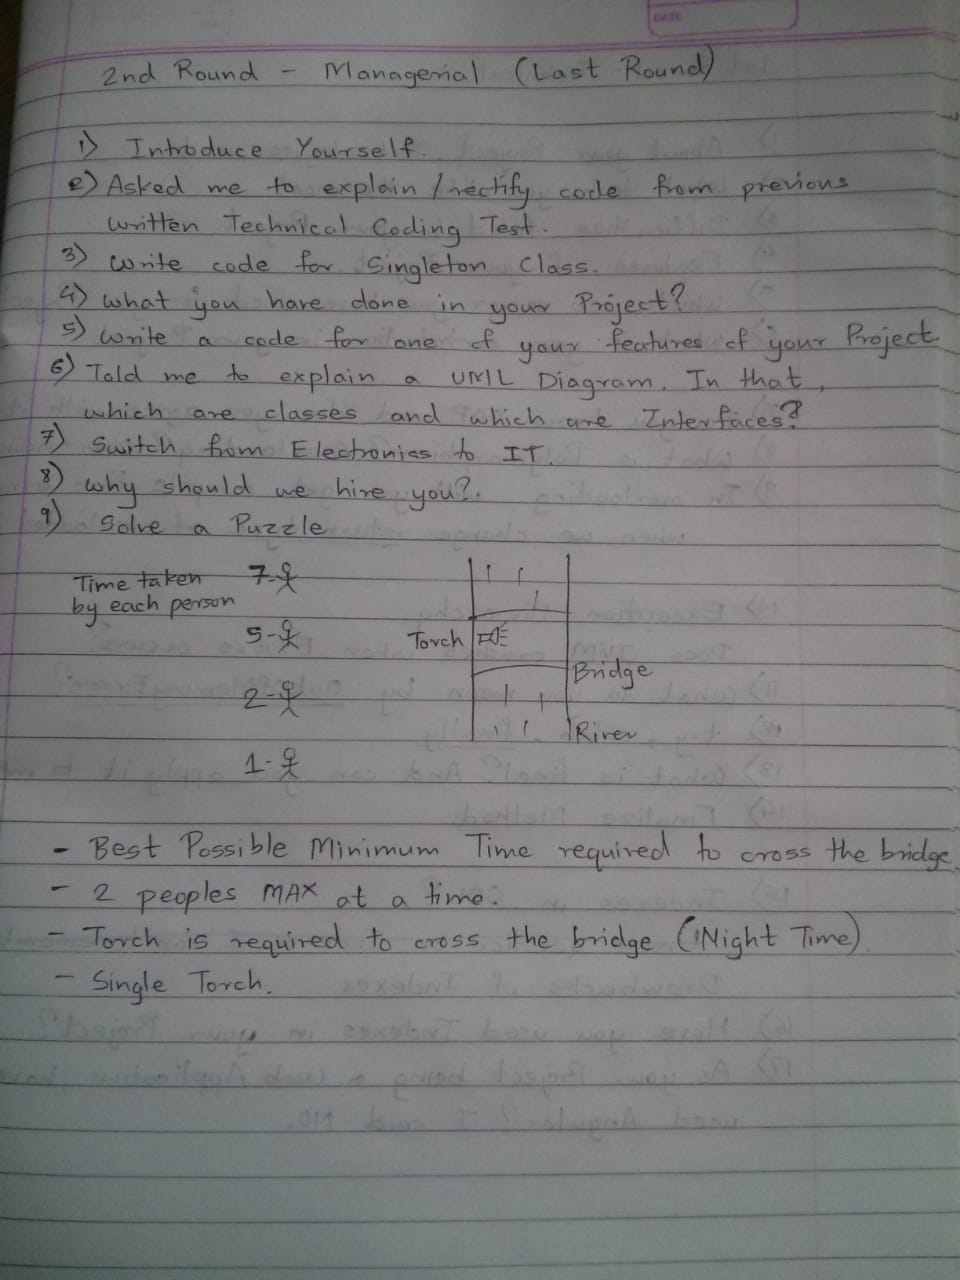 DATE
2nd Round - Managerial (Last Round)
1) Introduce Yourself.
2) Asked me to explain / rectify code from previous
written Technical Coding Test.
3) Write code for Singleton Class.
4) What you have done in your Project?
5) Write a code for one of your features of your Project.
6) Told me to explain a UML Diagram. In that,
which are classes and which are Interfaces?
7) Switch from Electronics to IT.
8) Why should we hire you?.
9) Solve a Puzzle
Time taken
by each person
7-
5-
2-
1-
Torch
Bridge
River
- Best Possible Minimum Time required to cross the bridge
- 2 peoples MAX at a time.
- Torch is required to cross the bridge (Night Time).
- Single Torch.